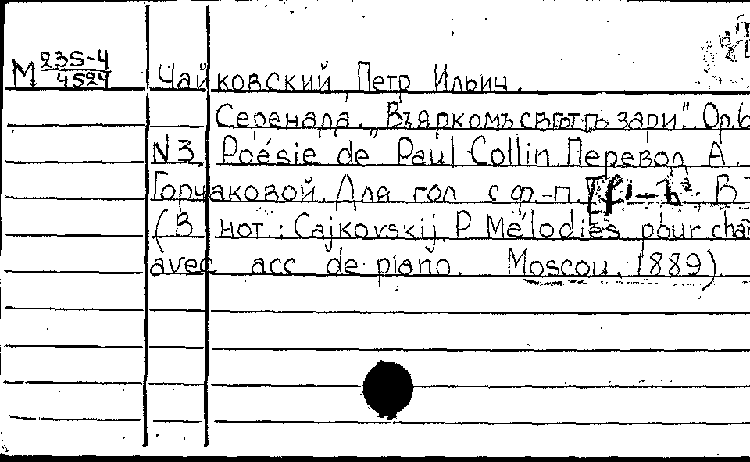 М 235-4
4524
Чайковский, Петр Ильич.
Серенада. "Въ яркомъ свѣтѣ зари". Ор. 6
N 3. Poésie de Paul Collin Перевод А.
Горчаковой. Для гол. с ф-п. [f1-h². В
(В нот: Čajkovskij P. Mélodies pour cha
avec acc de piano. Moscou, 1889).